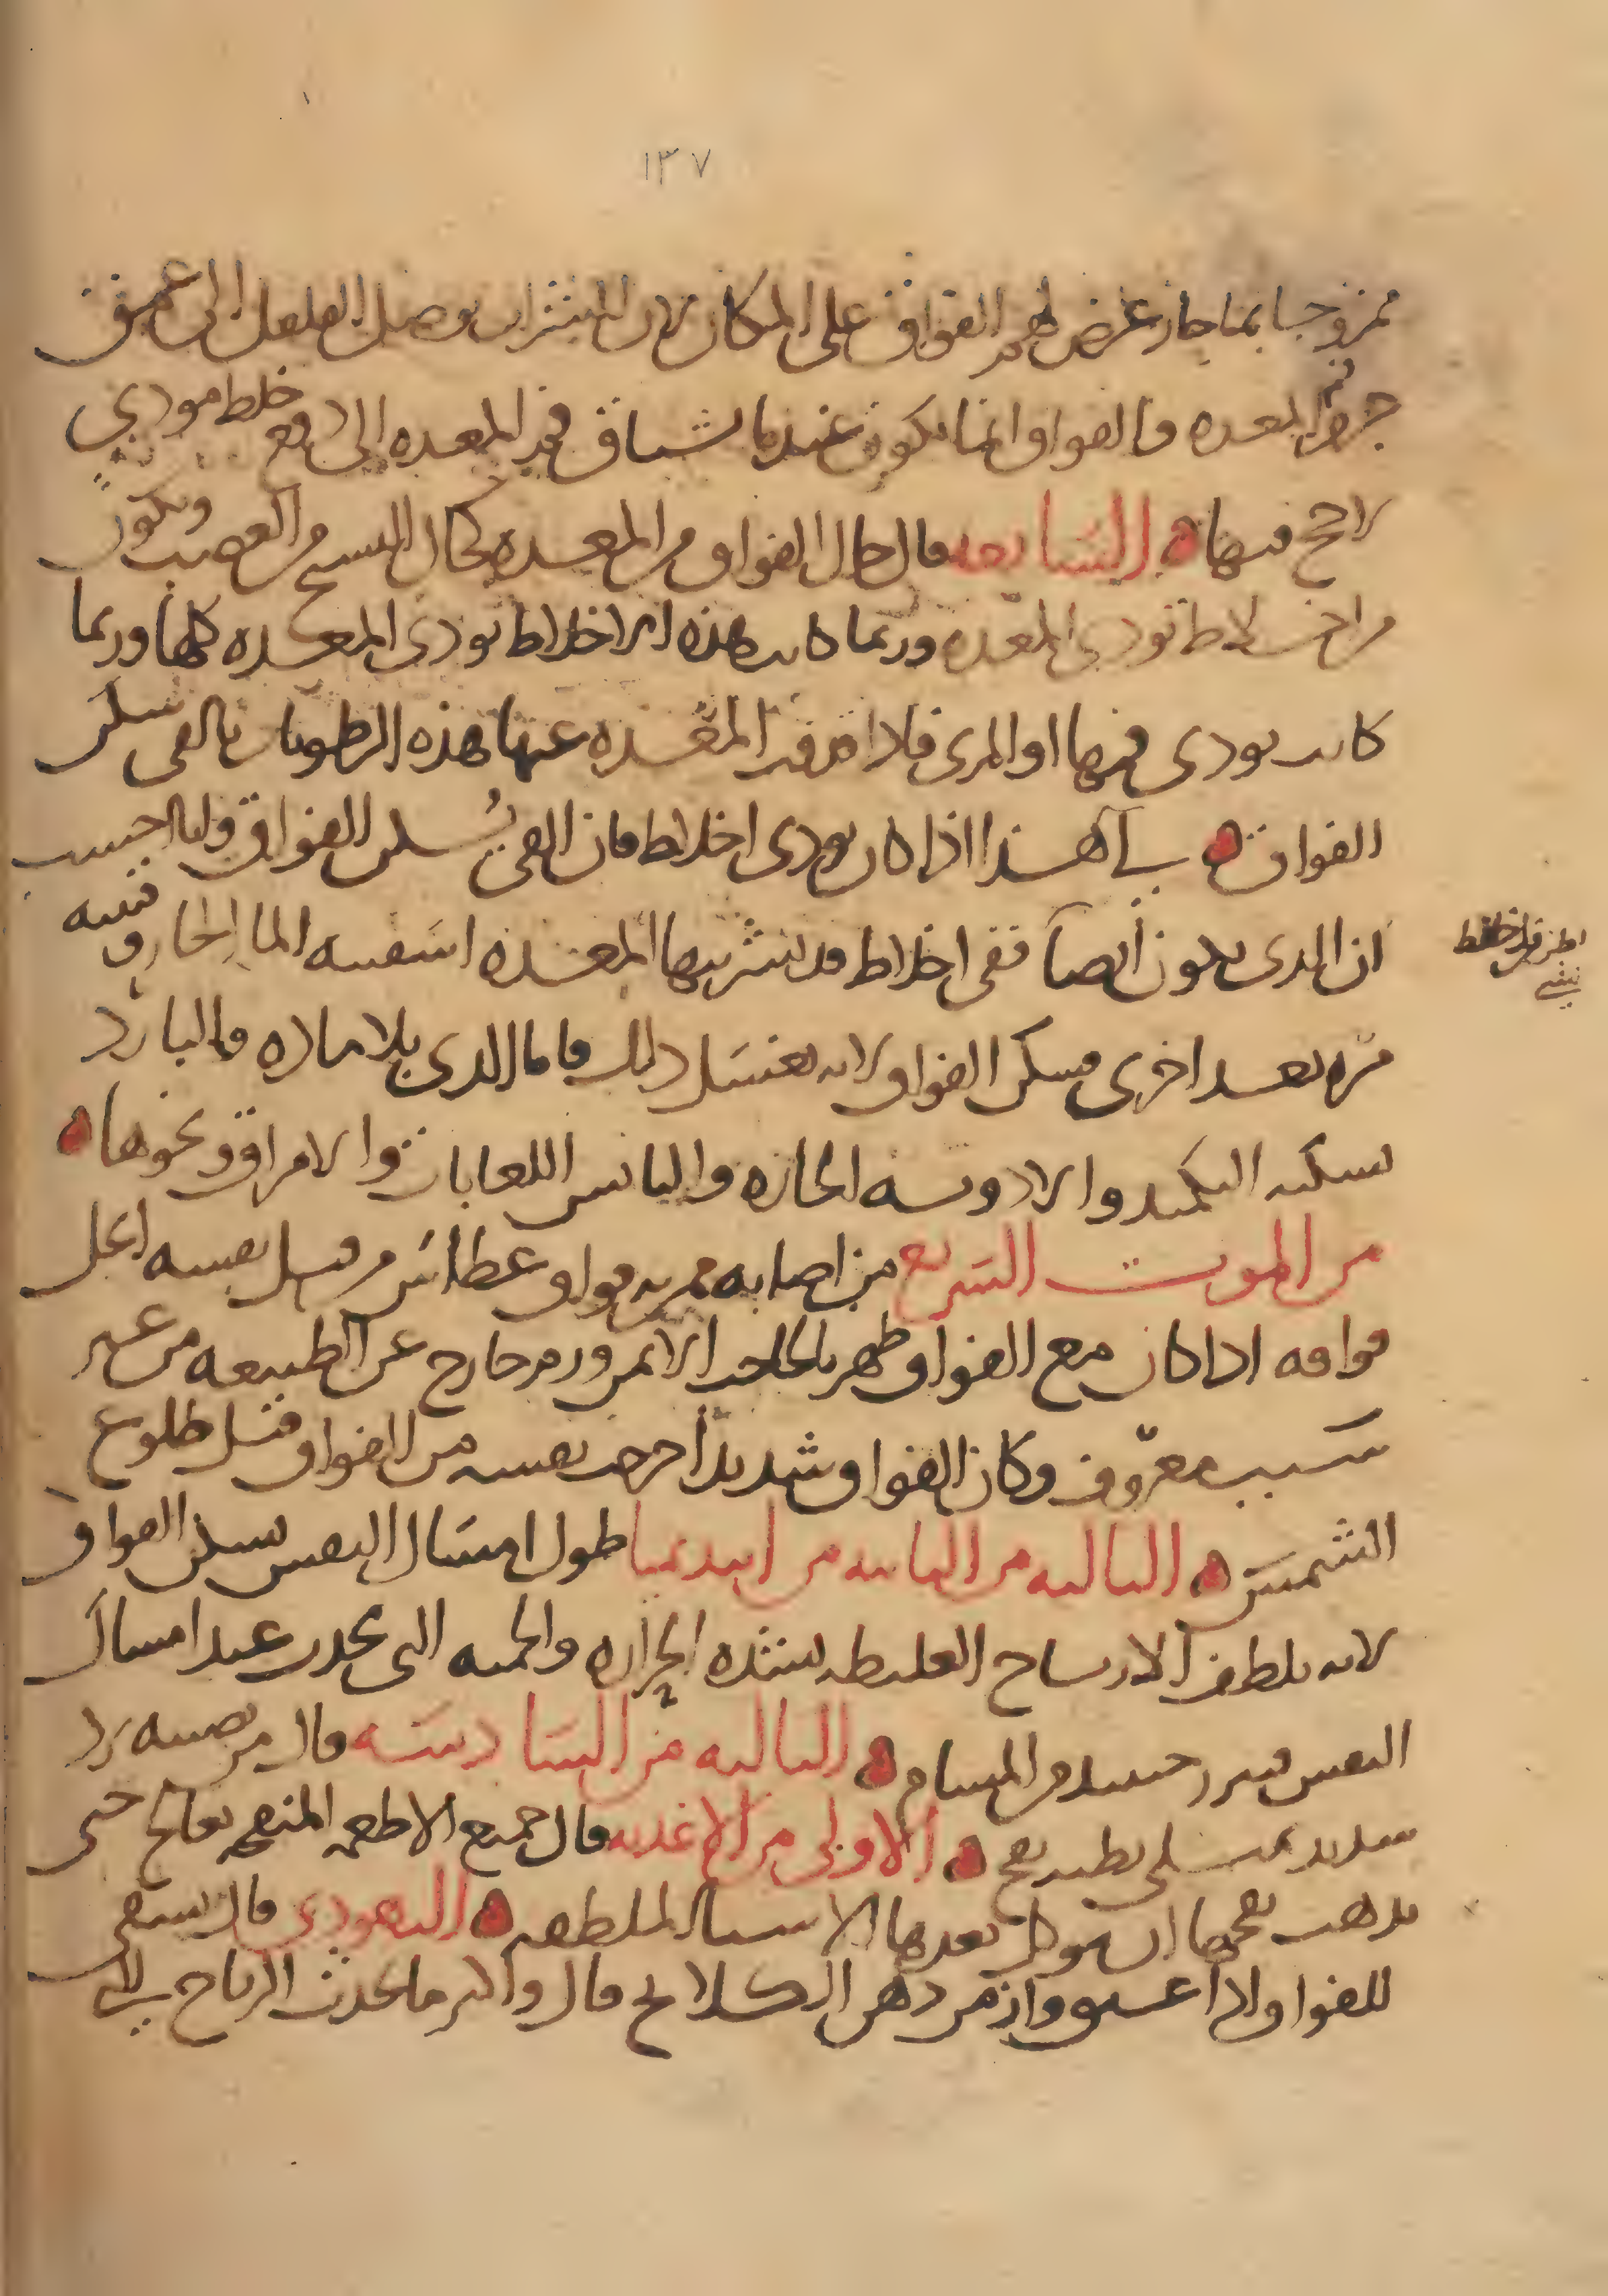 ١٣٧
ممزوجا بماء حار عرض لهم الفواق على المكان لان الشراب يوصل الفلفل الى عمق
جرم المعده والفواق انما يكون عندما يشتاق فم المعده الى دفع خلط موذي
لاحج فيها السابعه قال حال الفواق من المعده كحال التشنج من العصب ويكون
من اخلاط توذي المعده وربما كانت هذه الاخلاط توذي المعده كلها وربما
كانت توذي فمها او المري فاذا قذفت المعده عنها هذه الرطوبات بالقي سكن
الفواق لى هذا اذا كان يوذي اخلاط فان القي يسكن الفواق وانا احسب
ان الذي يكون ايضا ففي اخلاط قد تشربتها المعده اسقيته الما الحار وقيته
مره بعد اخرى فيسكن الفواق لانه يغسل ذلك فاما الذي بلا ماده فالبارد
يسكنه التكميد والادويه الحاره واليابس اللعابات والامراق ونحوها
من الموت السريع من اصابه فواق عطاس من قبل نفسه انحل
فواقه اذا كان مع الفواق ظهر بالجانب الايمن ورم خارج عن الطبيعه من غير
سبب معروف وكان الفواق شديدا خرجت نفسه من الفواق قبل طلوع
الشمس الثالثه من الثامنه من ابيديميا طول امساك النفس يسكن الفواق
لانه يلطف الارياح الغليظه بشده الحراره والحميه التي تحدث عند امساك
النفس فيبرز حينئذ من المسام الثالثه من السادسه قال من يصيبه برد
شديد يمتلي بطنه نفخ الاولى من الاغذيه قال جميع الاطعمه المنفخه يعالج حتى
يذهب نفخها ان يوكل بعدها الاشيا الملطفه اليهودي قال يسقى
للفواق اذا عتق وازمن دهن الكلكلانج قال واكثر ما تحدث الرياح في
اظن قد اخلاط
فيه